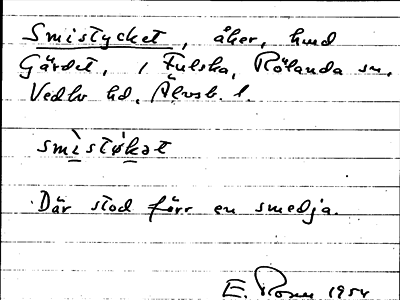 Smistycket, åker, hmd
Gärdet, / Fulska, Rölanda sn,
Vedbo hd, Älvsb. l.
smìstø̀kət
Där stod förr en smedja.
E. 1954